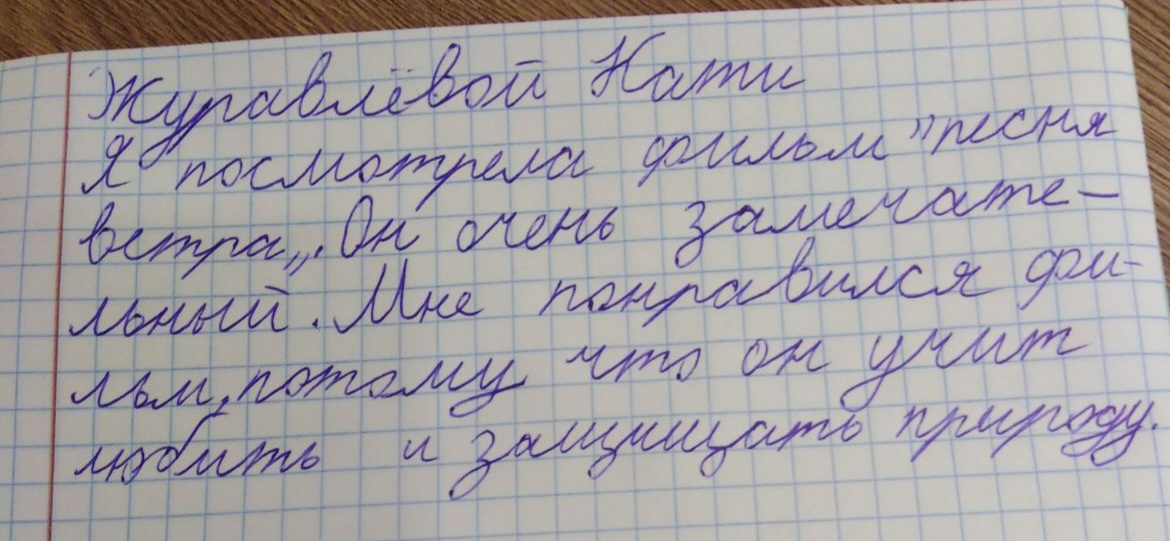 Журавлёвой Кати
Я посмотрела фильм "песня
ветра„. Он очень замечате-
льный. Мне понравился фи-
льм, потому что он учит
любить и защищать природу.